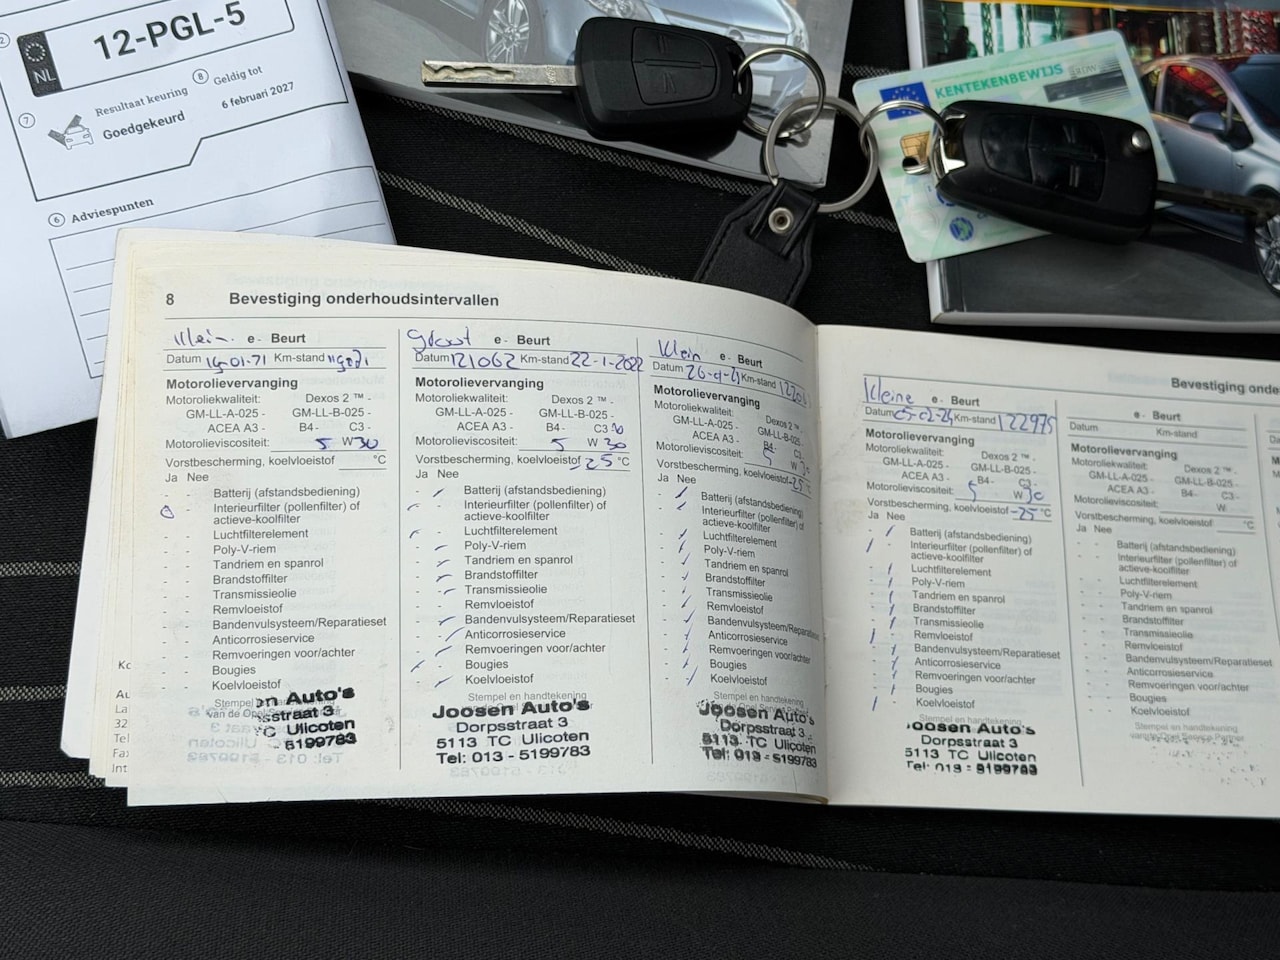 NL
12-PGL-5
8
Geldig tot
6 februari 2027
Resultaat keuring
7
Goedgekeurd
6
Adviespunten
KENTEKENBEWIJS
8
Bevestiging onderhoudsintervallen
Klein e - Beurt
Datum Km-stand
Motorolievervanging
Motoroliekwaliteit: Dexos 2 ™ -
GM-LL-A-025 - GM-LL-B-025 -
ACEA A3 - B4- C3 -
Motorolieviscositeit: 5 W 30
Vorstbescherming, koelvloeistof °C
Ja Nee
- - Batterij (afstandsbediening)
- Interieurfilter (pollenfilter) of
actieve-koolfilter
- - Luchtfilterelement
- - Poly-V-riem
- - Tandriem en spanrol
- - Brandstoffilter
- - Transmissieolie
- - Remvloeistof
- - Bandenvulsysteem/Reparatieset
- - Anticorrosieservice
- - Remvoeringen voor/achter
- - Bougies
- - Koelvloeistof
Stempel en handtekening
en Auto's
sstraat 3
TC Ulicoten
5199783
groot e - Beurt
Datum 121062 Km-stand 22-1-2022
Motorolievervanging
Motoroliekwaliteit: Dexos 2 ™ -
GM-LL-A-025 - GM-LL-B-025 -
ACEA A3 - B4- C3
Motorolieviscositeit: 5 W 30
Vorstbescherming, koelvloeistof -25 °C
Ja Nee
Batterij (afstandsbediening)
Interieurfilter (pollenfilter) of
actieve-koolfilter
Luchtfilterelement
Poly-V-riem
Tandriem en spanrol
Brandstoffilter
Transmissieolie
Remvloeistof
Bandenvulsysteem/Reparatieset
Anticorrosieservice
Remvoeringen voor/achter
Bougies
Koelvloeistof
Stempel en handtekening
Joosen Auto's
Dorpsstraat 3
5113 TC Ulicoten
Tel: 013 - 5199783
Klein e - Beurt
Datum Km-stand
Motorolievervanging
Motoroliekwaliteit: Dexos 2 ™ -
GM-LL-A-025 - GM-LL-B-025 -
ACEA A3 - B4- C3-
Motorolieviscositeit: 5 W
Vorstbescherming, koelvloeistof -25 °C
Ja Nee
Batterij (afstandsbediening)
Interieurfilter (pollenfilter) of
actieve-koolfilter
Luchtfilterelement
Poly-V-riem
Tandriem en spanrol
Brandstoffilter
Transmissieolie
Remvloeistof
Bandenvulsysteem/Reparatieset
Anticorrosieservice
Remvoeringen voor/achter
Bougies
Koelvloeistof
Stempel en handtekening
Joosen Auto's
Dorpsstraat 3
5113 TC Ulicoten
Tel: 013 - 5199783
Bevestiging
Kleine e - Beurt
Datum 05-02-24 Km-stand 122975
Motorolievervanging
Motoroliekwaliteit: Dexos 2 ™ -
GM-LL-A-025 - GM-LL-B-025 -
ACEA A3 - B4- C3 -
Motorolieviscositeit: 5 W 30
Vorstbescherming, koelvloeistof -25 °C
Ja Nee
Batterij (afstandsbediening)
Interieurfilter (pollenfilter) of
actieve-koolfilter
Luchtfilterelement
Poly-V-riem
Tandriem en spanrol
Brandstoffilter
Transmissieolie
Remvloeistof
Bandenvulsysteem/Reparatieset
Anticorrosieservice
Remvoeringen voor/achter
Bougies
Koelvloeistof
Stempel en handtekening
Joosen Auto's
Dorpsstraat 3
5113 TC Ulicoten
Tel: 013 - 5199783
e - Beurt
Datum Km-stand
Motorolievervanging
Motoroliekwaliteit: Dexos 2 ™ -
GM-LL-A-025 - GM-LL-B-025 -
ACEA A3 - B4- C3 -
Motorolieviscositeit: W
Vorstbescherming, koelvloeistof °C
Ja Nee
- - Batterij (afstandsbediening)
- - Interieurfilter (pollenfilter) of
actieve-koolfilter
- - Luchtfilterelement
- - Poly-V-riem
- - Tandriem en spanrol
- - Brandstoffilter
- - Transmissieolie
- - Remvloeistof
- - Bandenvulsysteem/Reparatieset
- - Anticorrosieservice
- - Remvoeringen voor/achter
- - Bougies
- - Koelvloeistof
Stempel en handtekening